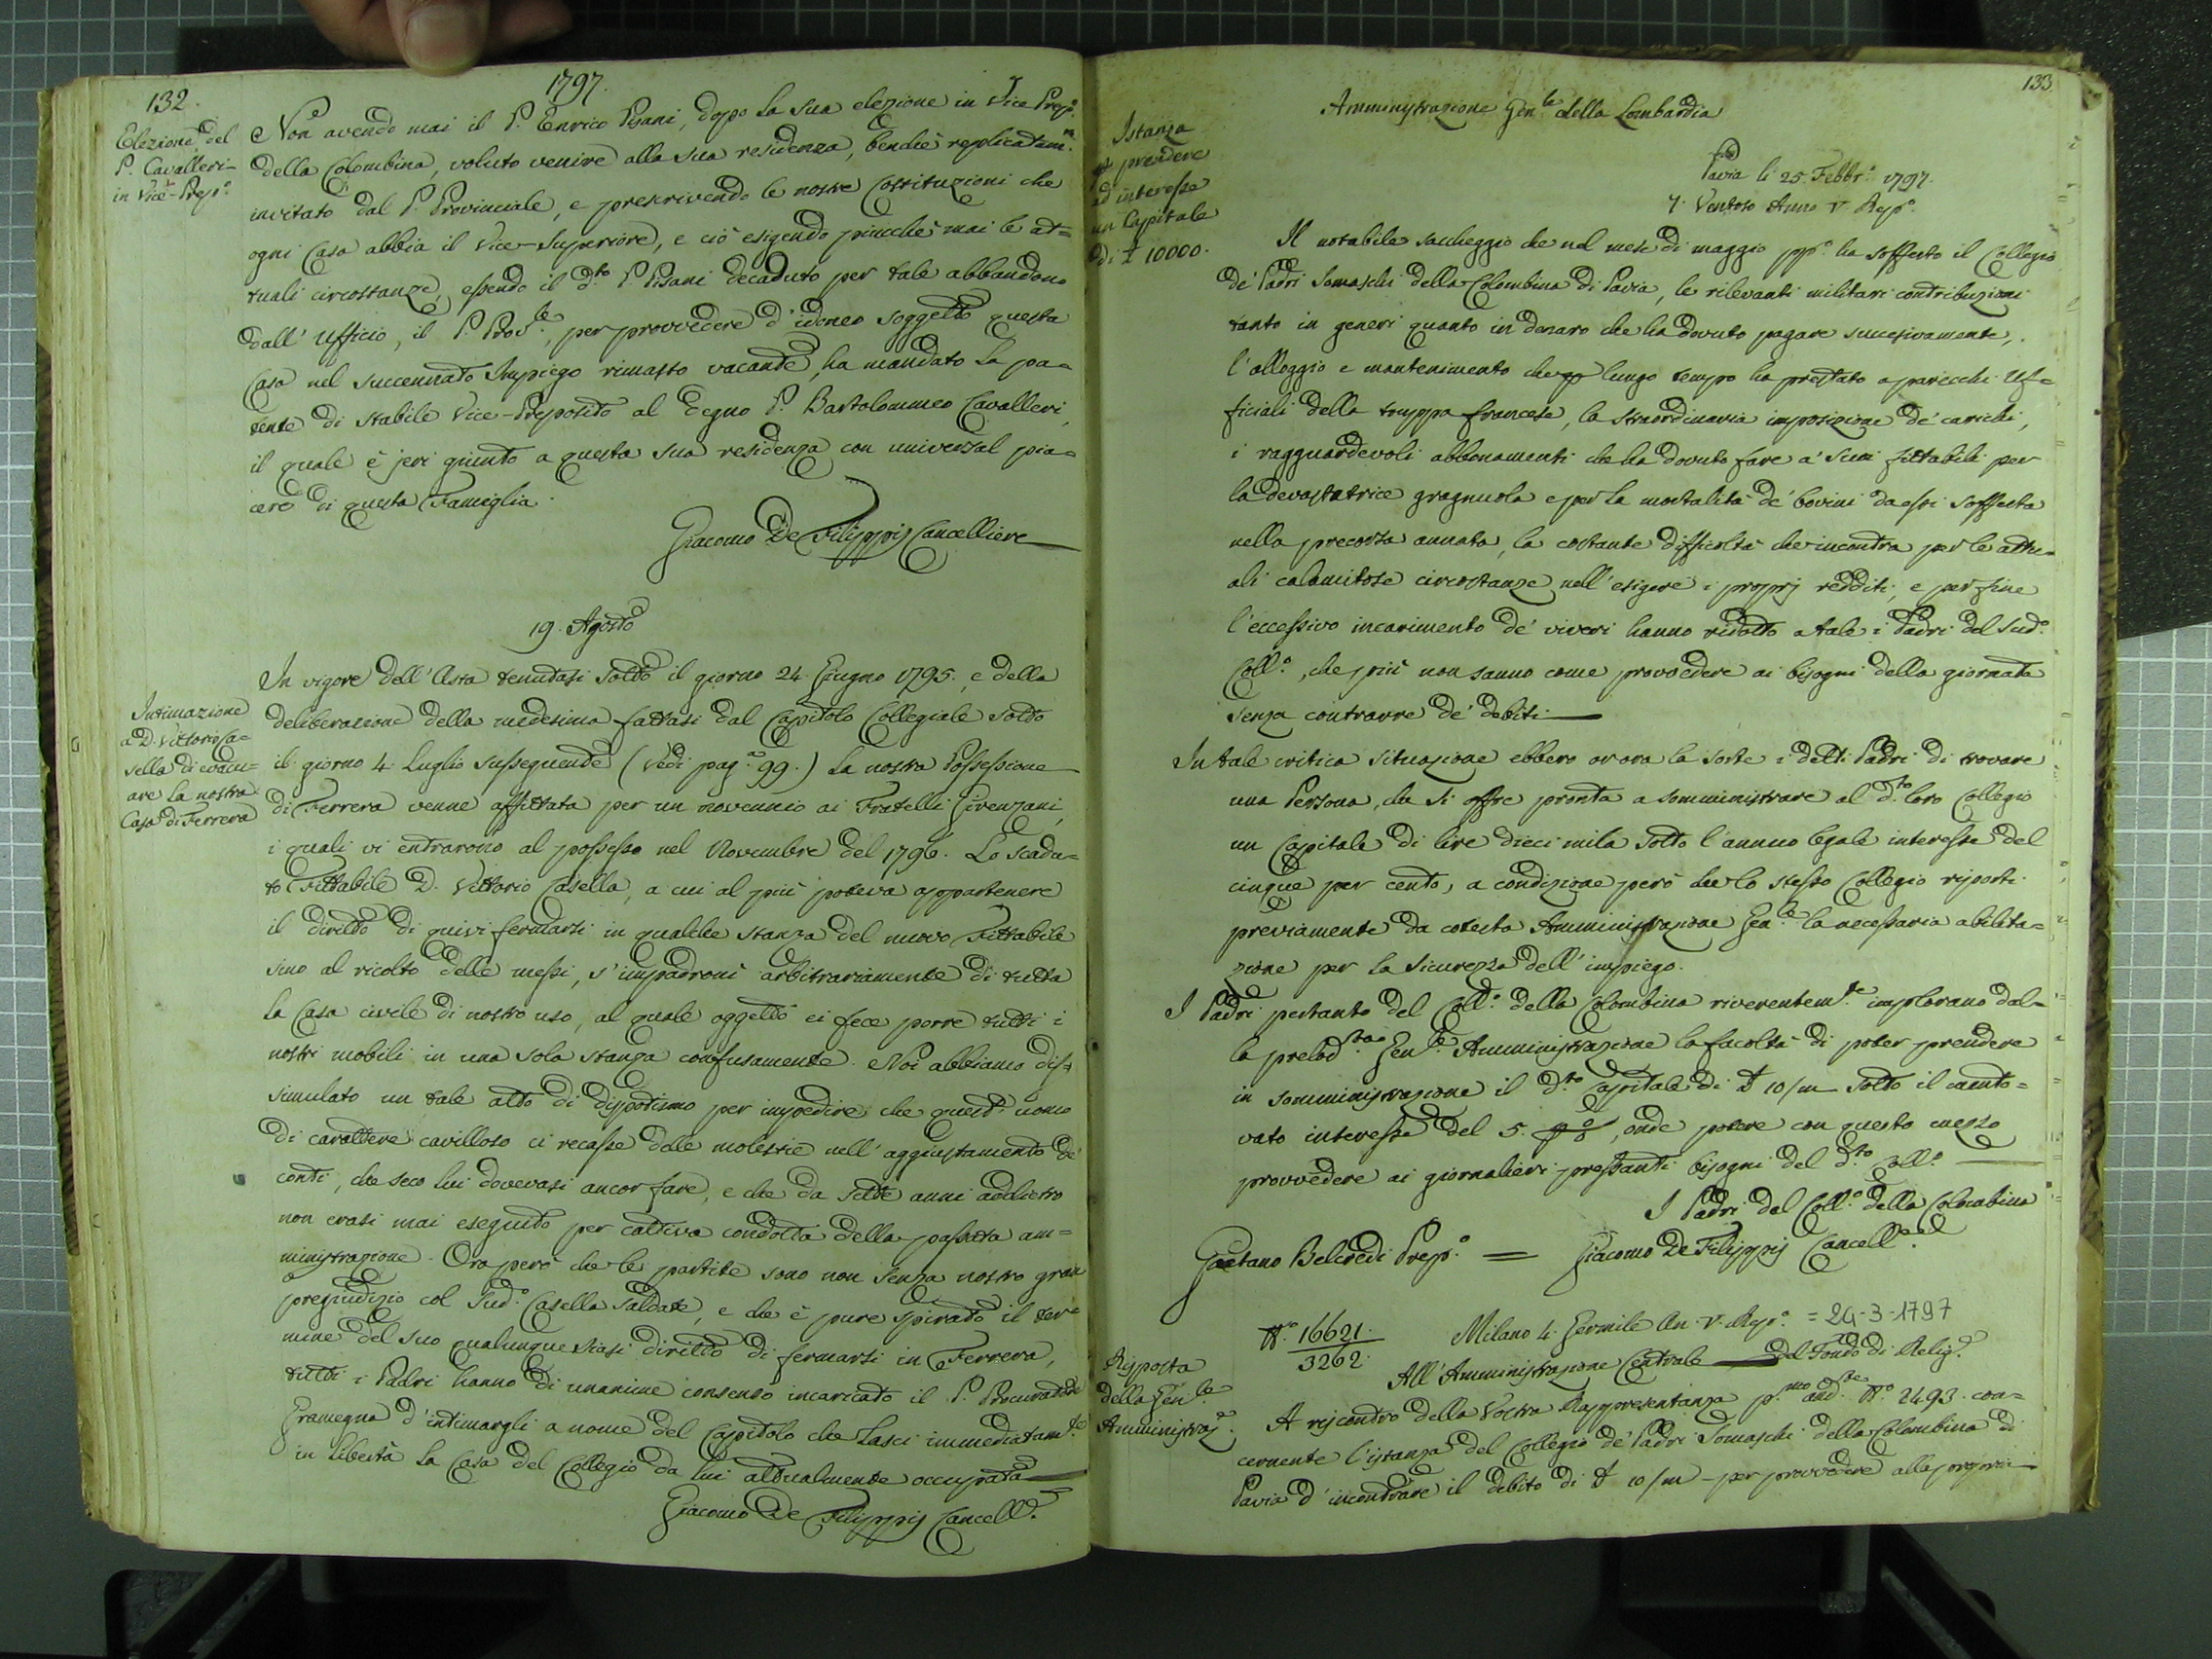 132.
1797.
Elezione del
P. Cavalleri
in Vice-Prep.º
Non avendo mai il P. Enrico Pisani, dopo la sua elezione in Vice Prep.º
della Colombina, voluto venire alla sua residenza, benchè replicatam.
invitato dal P. Provinciale, e prescrivendo le nostre Costituzioni che
ogni Casa abbia il Vice-Superiore, e ciò esigendo piucchè mai le at=
tuali circostanze, essendo il d.to P. Pisani decaduto per tale abbandono
dall' Ufficio, il P. Prov.le, per provvedere d'idoneo soggetto questa
Casa nel succennato Impiego rimasto vacante, ha mandato la pa=
tente di stabile Vice-Preposito al degno P. Bartolommeo Cavalleri,
il quale è jeri giunto a questa sua residenza con universal pia=
cere di questa Famiglia.
Giacomo De Filippis Cancelliere
19. Agosto
Intimazione
a D. Vittorio Ca=
sella di evacu=
are la nostra
Casa di Ferrera
In vigore dell' Asta tenutasi sotto il giorno 24. Giugno 1795., e della
deliberazione della medesima fattasi dal Capitolo Collegiale sotto
il giorno 4. Luglio susseguente (Vedi pag.ª 99.) la nostra Possessione
di Ferrera venne affittata per un novennio ai Fratelli Girenzani,
i quali vi entrarono al possesso nel Novembre del 1796. Lo scadu=
to Fittabile D. Vittorio Casella, a cui al più poteva appartenere
il diritto di quivi fermarsi in qualche stanza del nuovo Fittabile
sino al ricolto delle messi, s'impadronì arbitrariamente di tutta
la Casa civile di nostro uso, al quale oggetto ei fece porre tutti i
nostri mobili in una sola stanza confusamente. Noi abbiamo dis=
simulato un tale atto di dispotismo per impedire che quest' uomo
di carattere cavilloso ci recasse delle molestie nell' aggiustamento de'
conti, che seco lui dovevasi ancor fare, e che da sette anni addietro
non erasi mai eseguito per cattiva condotta della passata am=
ministrazione. Ora però che le partite sono non senza nostro gran
pregiudizio col sud.º Casella saldate, e che è pure spirato il ter=
mine del suo qualunque siasi diritto di fermarsi in Ferrera,
tutti i Padri hanno di unanime consenso incaricato il P. Procuratore
Gramegna d'intimargli a nome del Capitolo che lasci immediatam.te
in libertà la Casa del Collegio da lui attualmente occupata
Giacomo De Filippis Cancell.e
133.
Amministrazione Gen.le della Lombardia
Istanza
di prendere
ad interesse
un Capitale
di £ 10000.
Pavia li 25. Febbr.º 1797.
7. Ventoso Anno V. Rep.º
Il notabile saccheggio che nel mese di maggio pp.º ha sofferto il Collegio
de' Padri Somaschi della Colombina di Pavia, le rilevanti militari contribuzioni
tanto in generi quanto in denaro che ha dovuto pagare successivamente,
l'alloggio e mantenimento che per lungo tempo ha prestato a parecchi Uf=
ficiali della truppa francese, la straordinaria imposizione de' carichi,
i ragguardevoli abbonamenti che ha dovuto fare a' suoi fittabili per
la devastatrice gragnuola e per la mortalità de' bovini da essi sofferta
nella precorsa annata, la costante difficoltà che incontra per le attu=
ali calamitose circostanze nell' esigere i proprj redditi, e per fine
l'eccessivo incarimento de' viveri hanno ridotto a tale i Padri del sud.º
Coll.º, che più non sanno come provvedere ai bisogni della giornata
senza contrarre de' debiti
In tale critica situazione ebbero or ora la sorte i detti Padri di trovare
una Persona, che si offre pronta a somministrare al d.to loro Collegio
un Capitale di lire dieci mila sotto l'annuo legale interesse del
cinque per cento, a condizione però che lo stesso Collegio riporti
previamente da cotesta Amministrazione Gen.le la necessaria abilita=
zione per la sicurezza dell' impiego.
I Padri pertanto del Coll.º della Colombina riverentem.te implorano dal=
la prelod.ta Gen.le Amministrazione la facoltà di poter prendere
in somministrazione il d.to Capitale di £ 10/m sotto il cauto=
vato interesse del 5. p%, onde potere con questo mezzo
provvedere ai giornalieri pressanti bisogni del d.to Coll.º
I Padri del Coll.º della Colombina
Gaetano Belcredi Prep.º = Giacomo De Filippis Cancell.e
N.º 16621.
3262.
Milano 4. Germile An. V. Rep.º = 24-3-1797
All' Amministrazione Centrale del Fondo di Relig.e
Risposta
della Gen.le
Amministraz.e
A riscontro della Vostra Rappresentanza p.mo and.te N.º 2493. con=
cernente l'istanza del Collegio de' Padri Somaschi della Colombina di
Pavia d'incontrare il debito di £ 10/m - per provvedere alla propria